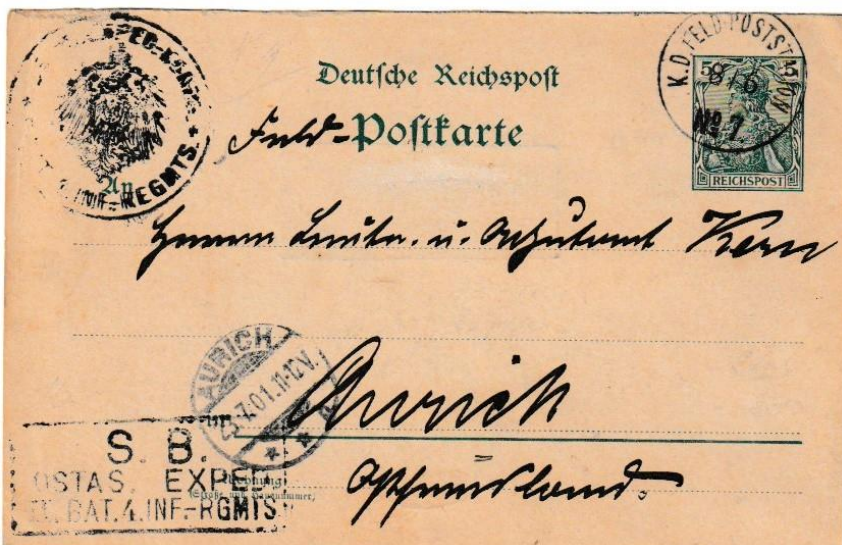 Deutsche Reichspost
Feld-Postkarte
K.D. FELD-POSTSTATION
8/6
No 7.
5 5
REICHSPOST
INF.-REGMTS.
An
Herrn Leutn. u. Adjutant Kern
AURICH
23.7.01.11-12V.
Aurich
in
Wohnung
(Straße und Hausnummer)
Ostfriesland.
S. B.
OSTAS. EXPED.
BAT. 4. INF.-RGMTS.